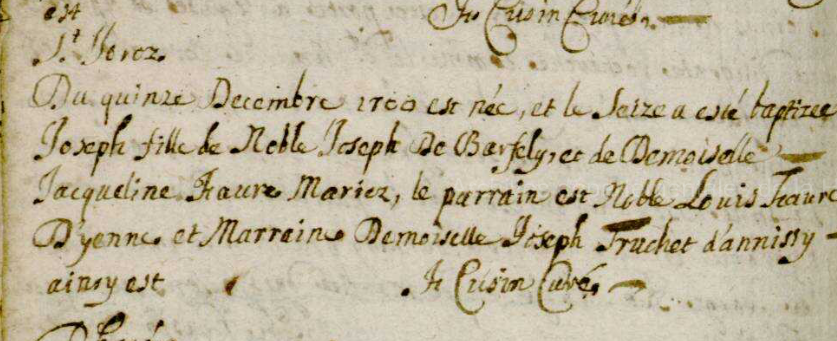 est Jo Cusin Curé.
St Jeroz.
Du quinze Decembre 1700 est née, et le seize a esté baptizee
Joseph fille de Noble Joseph De Barfely, et de Demoiselle
Jacqueline Faure Mariez, le parrain est Noble Louis Faure
D'yenne et Marraine Demoiselle Joseph Truchet d'annissy
ainsy est Jo Cusin Curé,